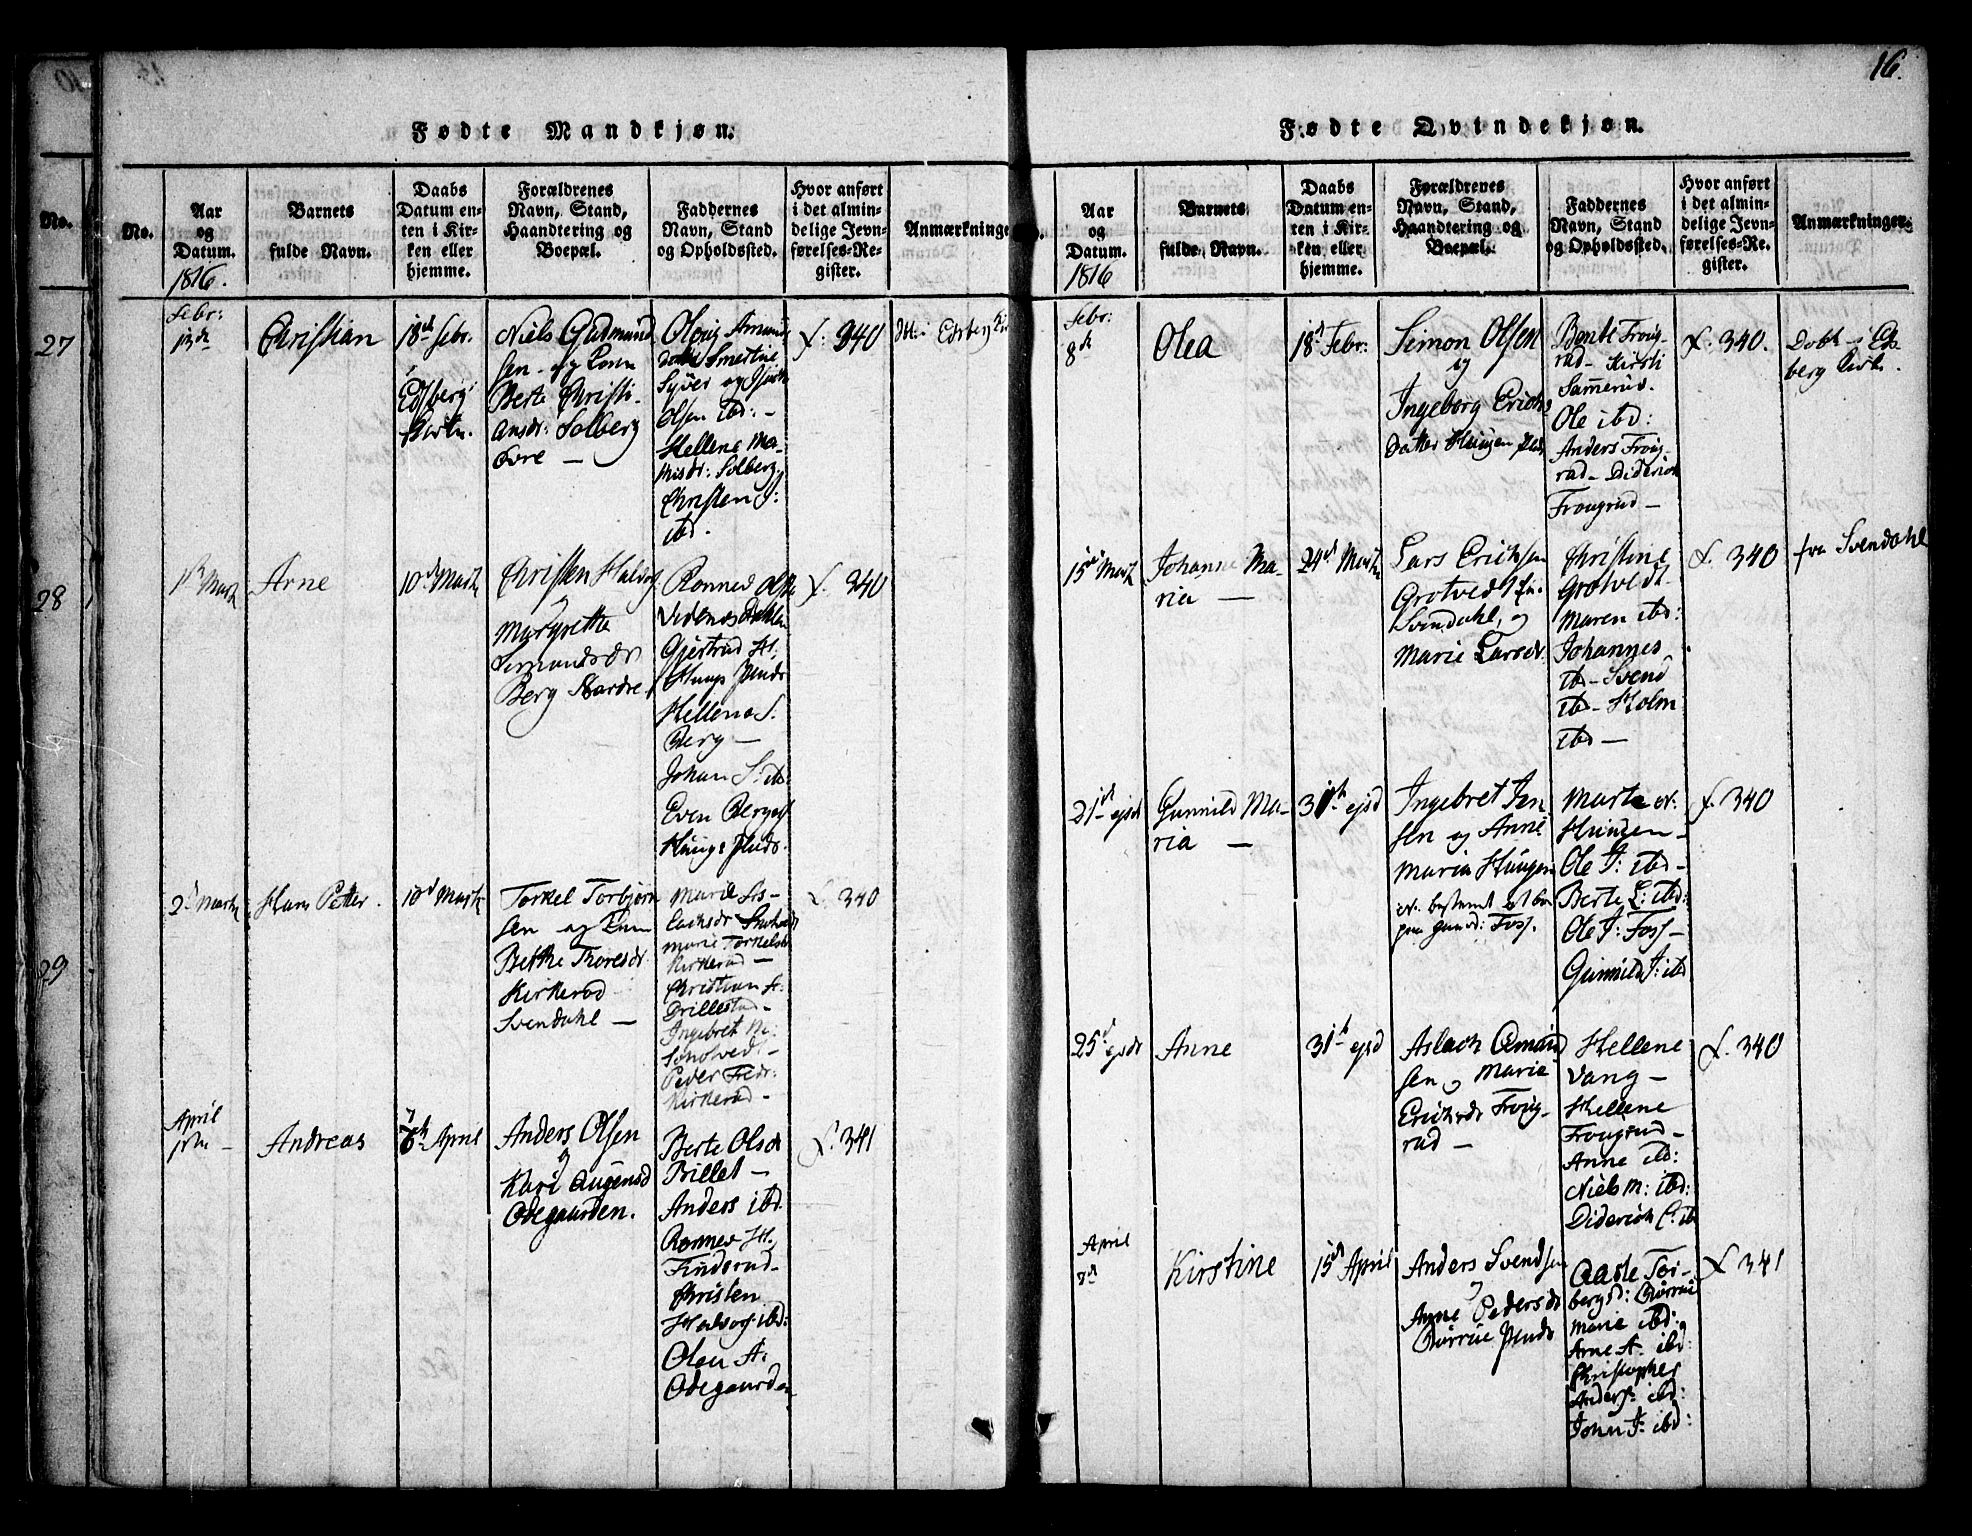 16.
Fødte Mandkjøn.
No.
No.
Aar
og
Datum.
1816.
Barnets
fulde Navn.
Daabs
Datum en-
ten i Kir-
ken eller
hjemme.
Forældrenes
Navn, Stand,
Haandtering og
Boepæl.
Faddernes
Navn, Stand
og Opholdssted.
Hvor anført
i det almin-
delige Jevn-
førelses-Re-
gister.
Anmærkninge
27
Febr:
13de
Christian
18de Febr.
i
Edsberg
Niels Gudmund
sen og Kone
Berte Christi-
ansdr: Solberg
øvre —
Syver og
Olsen ibd: –
Hellene Ma-
thisdr: Solberg,
Christen J:
ibd.
f. 340
28
Arne
10d Marts
Christen Halvors
og
Margrethe
Berg Nordre
Ronnev
Gjertrud H.
Haugs
Hellene S.
Berg —
Johan S: ibd:
Even Berg
f. 340
29
2d Marts
Hans Petter.
10d Marts
Torkel Torbjørn
sen og Kone
Berthe Thoresdr
Kirkerud
Svendahl —
Marie Torkelsdr
Kirkerud —
Christian H:
Drillestad –
Ingebret N:
Peder Fredr:
Kirkerud –
f. 340
April
1ste –
Andreas
April
Anders Olsen
og
Kari Augensd
Ødegaarden.
Berte Olsdr
Billet —
Anders ibd.
Ronnev H.
Finderud –
Christen
Halvors: ibd:
Olea A:
Ødegaarden
f. 341
Fødte Qvindekjøn.
Aar
og
Datum.
1816
Barnets
fulde Navn.
Daabs
Datum en-
ten i Kir-
ken eller
hjemme.
Forældrenes
Navn, Stand,
Haandtering og
Boepæl.
Faddernes
Navn, Stand
og Opholdssted.
Hvor anført
i det almin-
delige Jevn-
førelses-Re-
gister.
Anmærkninger.
Febr:
8de
Olea
18d Febr:
Simon Olsen
og
Ingeborg Erichs
Datter Haugen
Berthe Froug-
rud – Kirsti
Sammerud.
Ole ibd:
Anders Froug-
rud – Diderich
Frougrud —
f. 340.
Døbt i Eds
berg Kirke.
15d Marts
Johanne Ma-
ria —
24d Marts
Lars Erichsen
Grotvedt
Svendahl, og
Marie Larsdr.
Christine
Grotvedt.
Maren ibd:
Johannes
ibd – Svend
ibd – Holm
ibd —
f. 340
fra Svendahl
21d ejsd
Gunnild Ma-
ria —
31te ejsd
Ingebret Jen
sen og Anne
Maria Haugen
Marte N:
Haugen –
Ole J: ibd –
Berte L: ibd:
Ole J: Foss –
Gunnild J: ibd
f. 340
25d ejsd
Anne
31te ejsd
Aslach Amund
sen og Marie
Erichsdr Froug-
rud —
Hellene
Vang –
Hellene
Frougrud –
Anne ibd:
Niels M: ibd:
Diderich C: ibd
f. 340
April
Kirstine
15d April
Anders Svendsen
og
Anne Pedersdr
Tor-
bergsd:
Marie ibd:
Arne A. ibd:
Christopher
Anders: ibd:
John J: ibd:
f 341